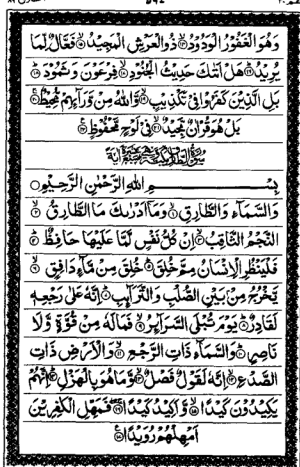 وَهُوَ الْغَفُورُ الْوَدُودُ ۝ ذُو الْعَرْشِ الْمَجِيدُ ۝ فَعَّالٌ لِّمَا
يُرِيدُ ۝ هَلْ اَتٰكَ حَدِيثُ الْجُنُودِ ۝ فِرْعَوْنَ وَثَمُودَ ۝
بَلِ الَّذِينَ كَفَرُوا فِي تَكْذِيبٍ ۝ وَّاللّٰهُ مِنْ وَّرَآئِهِمْ مُّحِيطٌ ۝
بَلْ هُوَ قُرْاٰنٌ مَّجِيدٌ ۝ فِي لَوْحٍ مَّحْفُوظٍ ۝
بِسْمِ اللّٰهِ الرَّحْمٰنِ الرَّحِيمِ ۝
وَالسَّمَآءِ وَالطَّارِقِ ۝ وَمَآ اَدْرٰىكَ مَا الطَّارِقُ ۝
النَّجْمُ الثَّاقِبُ ۝ اِنْ كُلُّ نَفْسٍ لَّمَّا عَلَيْهَا حَافِظٌ ۝
فَلْيَنْظُرِ الْاِنْسَانُ مِمَّ خُلِقَ ۝ خُلِقَ مِنْ مَّآءٍ دَافِقٍ ۝
يَّخْرُجُ مِنْ بَيْنِ الصُّلْبِ وَالتَّرَآئِبِ ۝ اِنَّهٗ عَلٰى رَجْعِهٖ
لَقَادِرٌ ۝ يَوْمَ تُبْلَى السَّرَآئِرُ ۝ فَمَا لَهٗ مِنْ قُوَّةٍ وَّلَا
نَاصِرٍ ۝ وَالسَّمَآءِ ذَاتِ الرَّجْعِ ۝ وَالْاَرْضِ ذَاتِ
الصَّدْعِ ۝ اِنَّهٗ لَقَوْلٌ فَصْلٌ ۝ وَّمَا هُوَ بِالْهَزْلِ ۝ اِنَّهُمْ
يَكِيدُونَ كَيْدًا ۝ وَّاَكِيدُ كَيْدًا ۝ فَمَهِّلِ الْكٰفِرِينَ
اَمْهِلْهُمْ رُوَيْدًا ۝